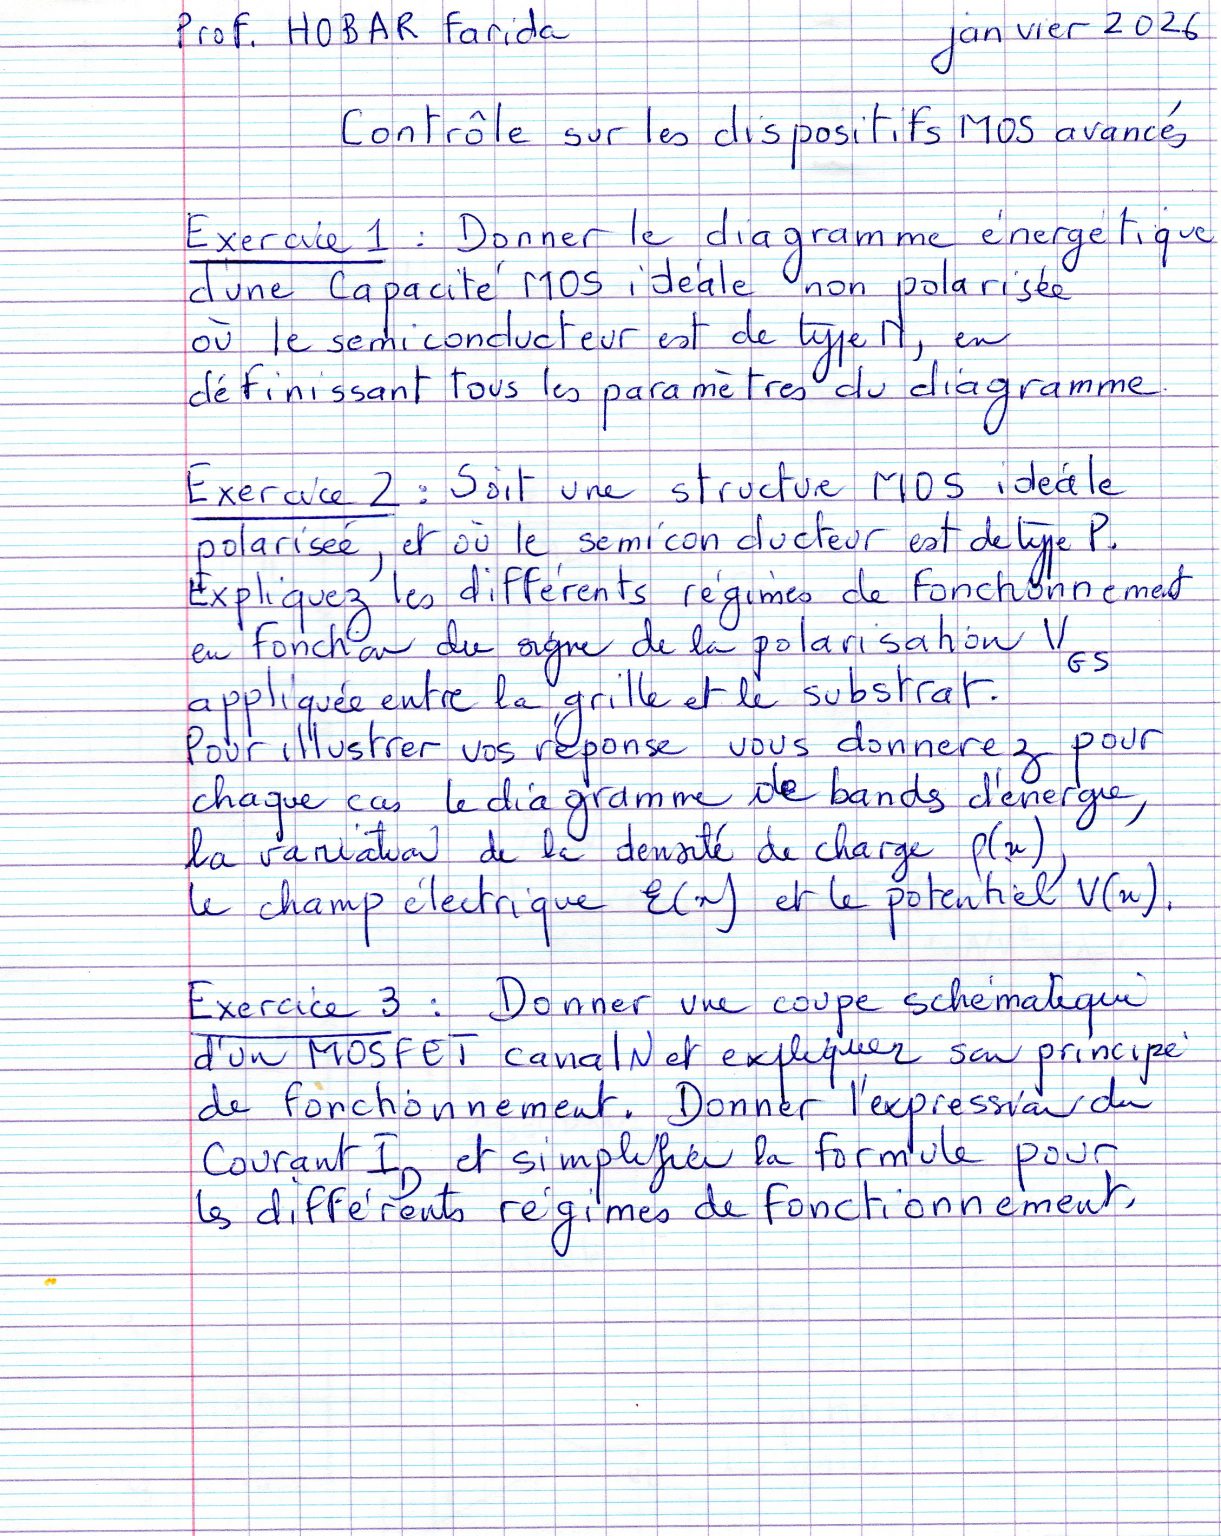 Prof. HOBAR Farida janvier 2026
Contrôle sur les dispositifs MOS avancés
Exercice 1 : Donner le diagramme énergétique
d'une Capacité MOS idéale non polarisée
où le semiconducteur est de type N, en
définissant tous les paramètres du diagramme.
Exercice 2 : Soit une structure MOS idéale
polarisée, et où le semiconducteur est de type P.
Expliquez les différents régimes de fonctionnement
en fonction du signe de la polarisation V_GS
appliquée entre la grille et le substrat.
Pour illustrer vos réponse vous donnerez pour
chaque cas le diagramme de bands d'énergie,
la variation de la densité de charge ρ(x),
le champ électrique ℰ(x) et le potentiel V(x).
Exercice 3 : Donner une coupe schématique
d'un MOSFET canal N et expliquer son principe
de fonctionnement. Donner l'expression du
Courant I_D et simplifier la formule pour
les différents régimes de fonctionnement.